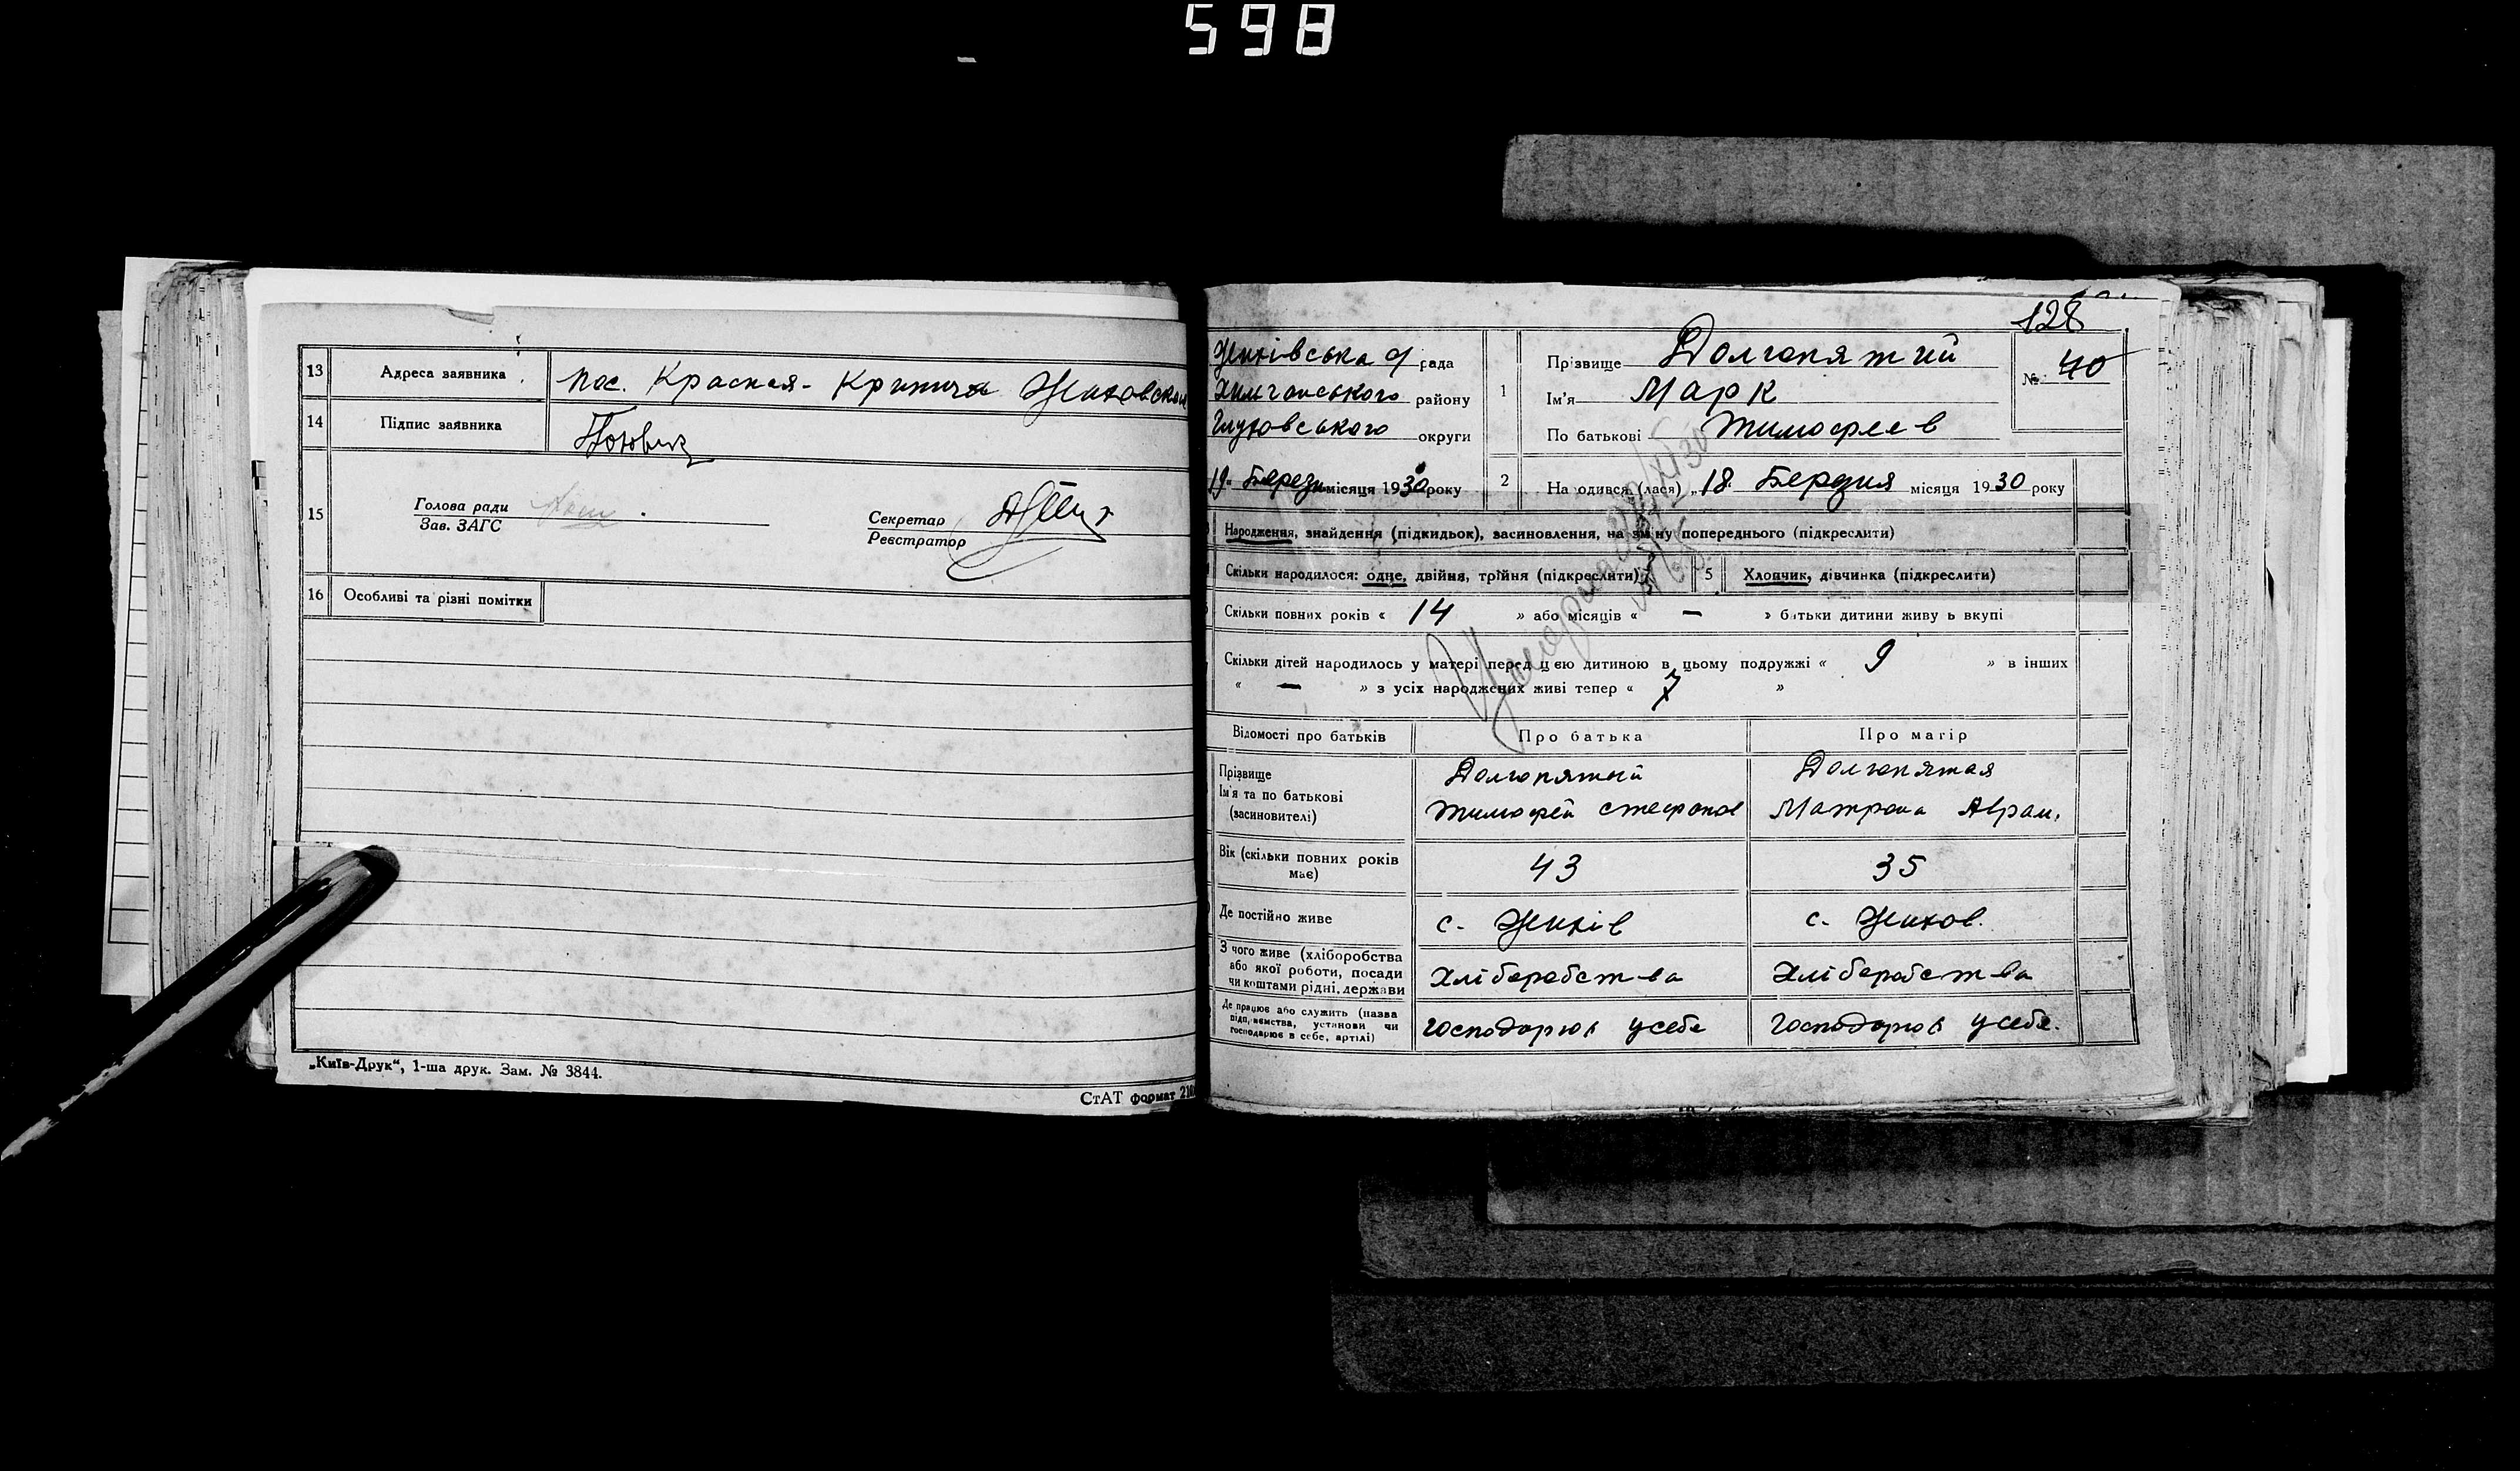 598
13 Адреса заявника пос. Красная-Криница Жиховской
14 Підпис заявника
15 Голова ради
Зав. ЗАГС
Секретар
Реєстратор
16 Особливі та різні помітки
„Київ-Друк“, 1-ша друк. Зам. № 3844.
СтАТ формат
128
Жихівська с/ рада
Хильчанського району
Глуховського округи
19 Березня місяця 1930 року
1 Прізвище Долгопятий
Ім'я Марк
По батькові Тимофеев
№ 40
2 На одився (лася) „18 Березня місяця 1930 року
Народження, знайдення (підкидьок), засиновлення, на зміну попереднього (підкреслити)
Скільки народилося: одне, двійня, трійня (підкреслити) 5 Хлопчик, дівчинка (підкреслити)
Скільки повних років « 14 » або місяців « — » батьки дитини живу ь вкупі
Скільки дітей народилось у матері перед цією дитиною в цьому подружжі « 9 » в інших
« — » з усіх народжених живі тепер « 7 »
Відомості про батьків Про батька Про матір
Прізвище
Ім'я та по батькові
(засиновителі)
Долгопятий
Тимофей Стефанов
Долгопятая
Матрона Аврам.
Вік (скільки повних років має) 43 35
Де постійно живе с. Жихів с. Жихов.
З чого живе (хліборобства
або якої роботи, посади
чи коштами рідні, держави
Хліборобства Хліборобства
Де працює або служить (назва
підприємства, установи чи
господарює в себе, артілі)
господорює усебе господорює усебе.